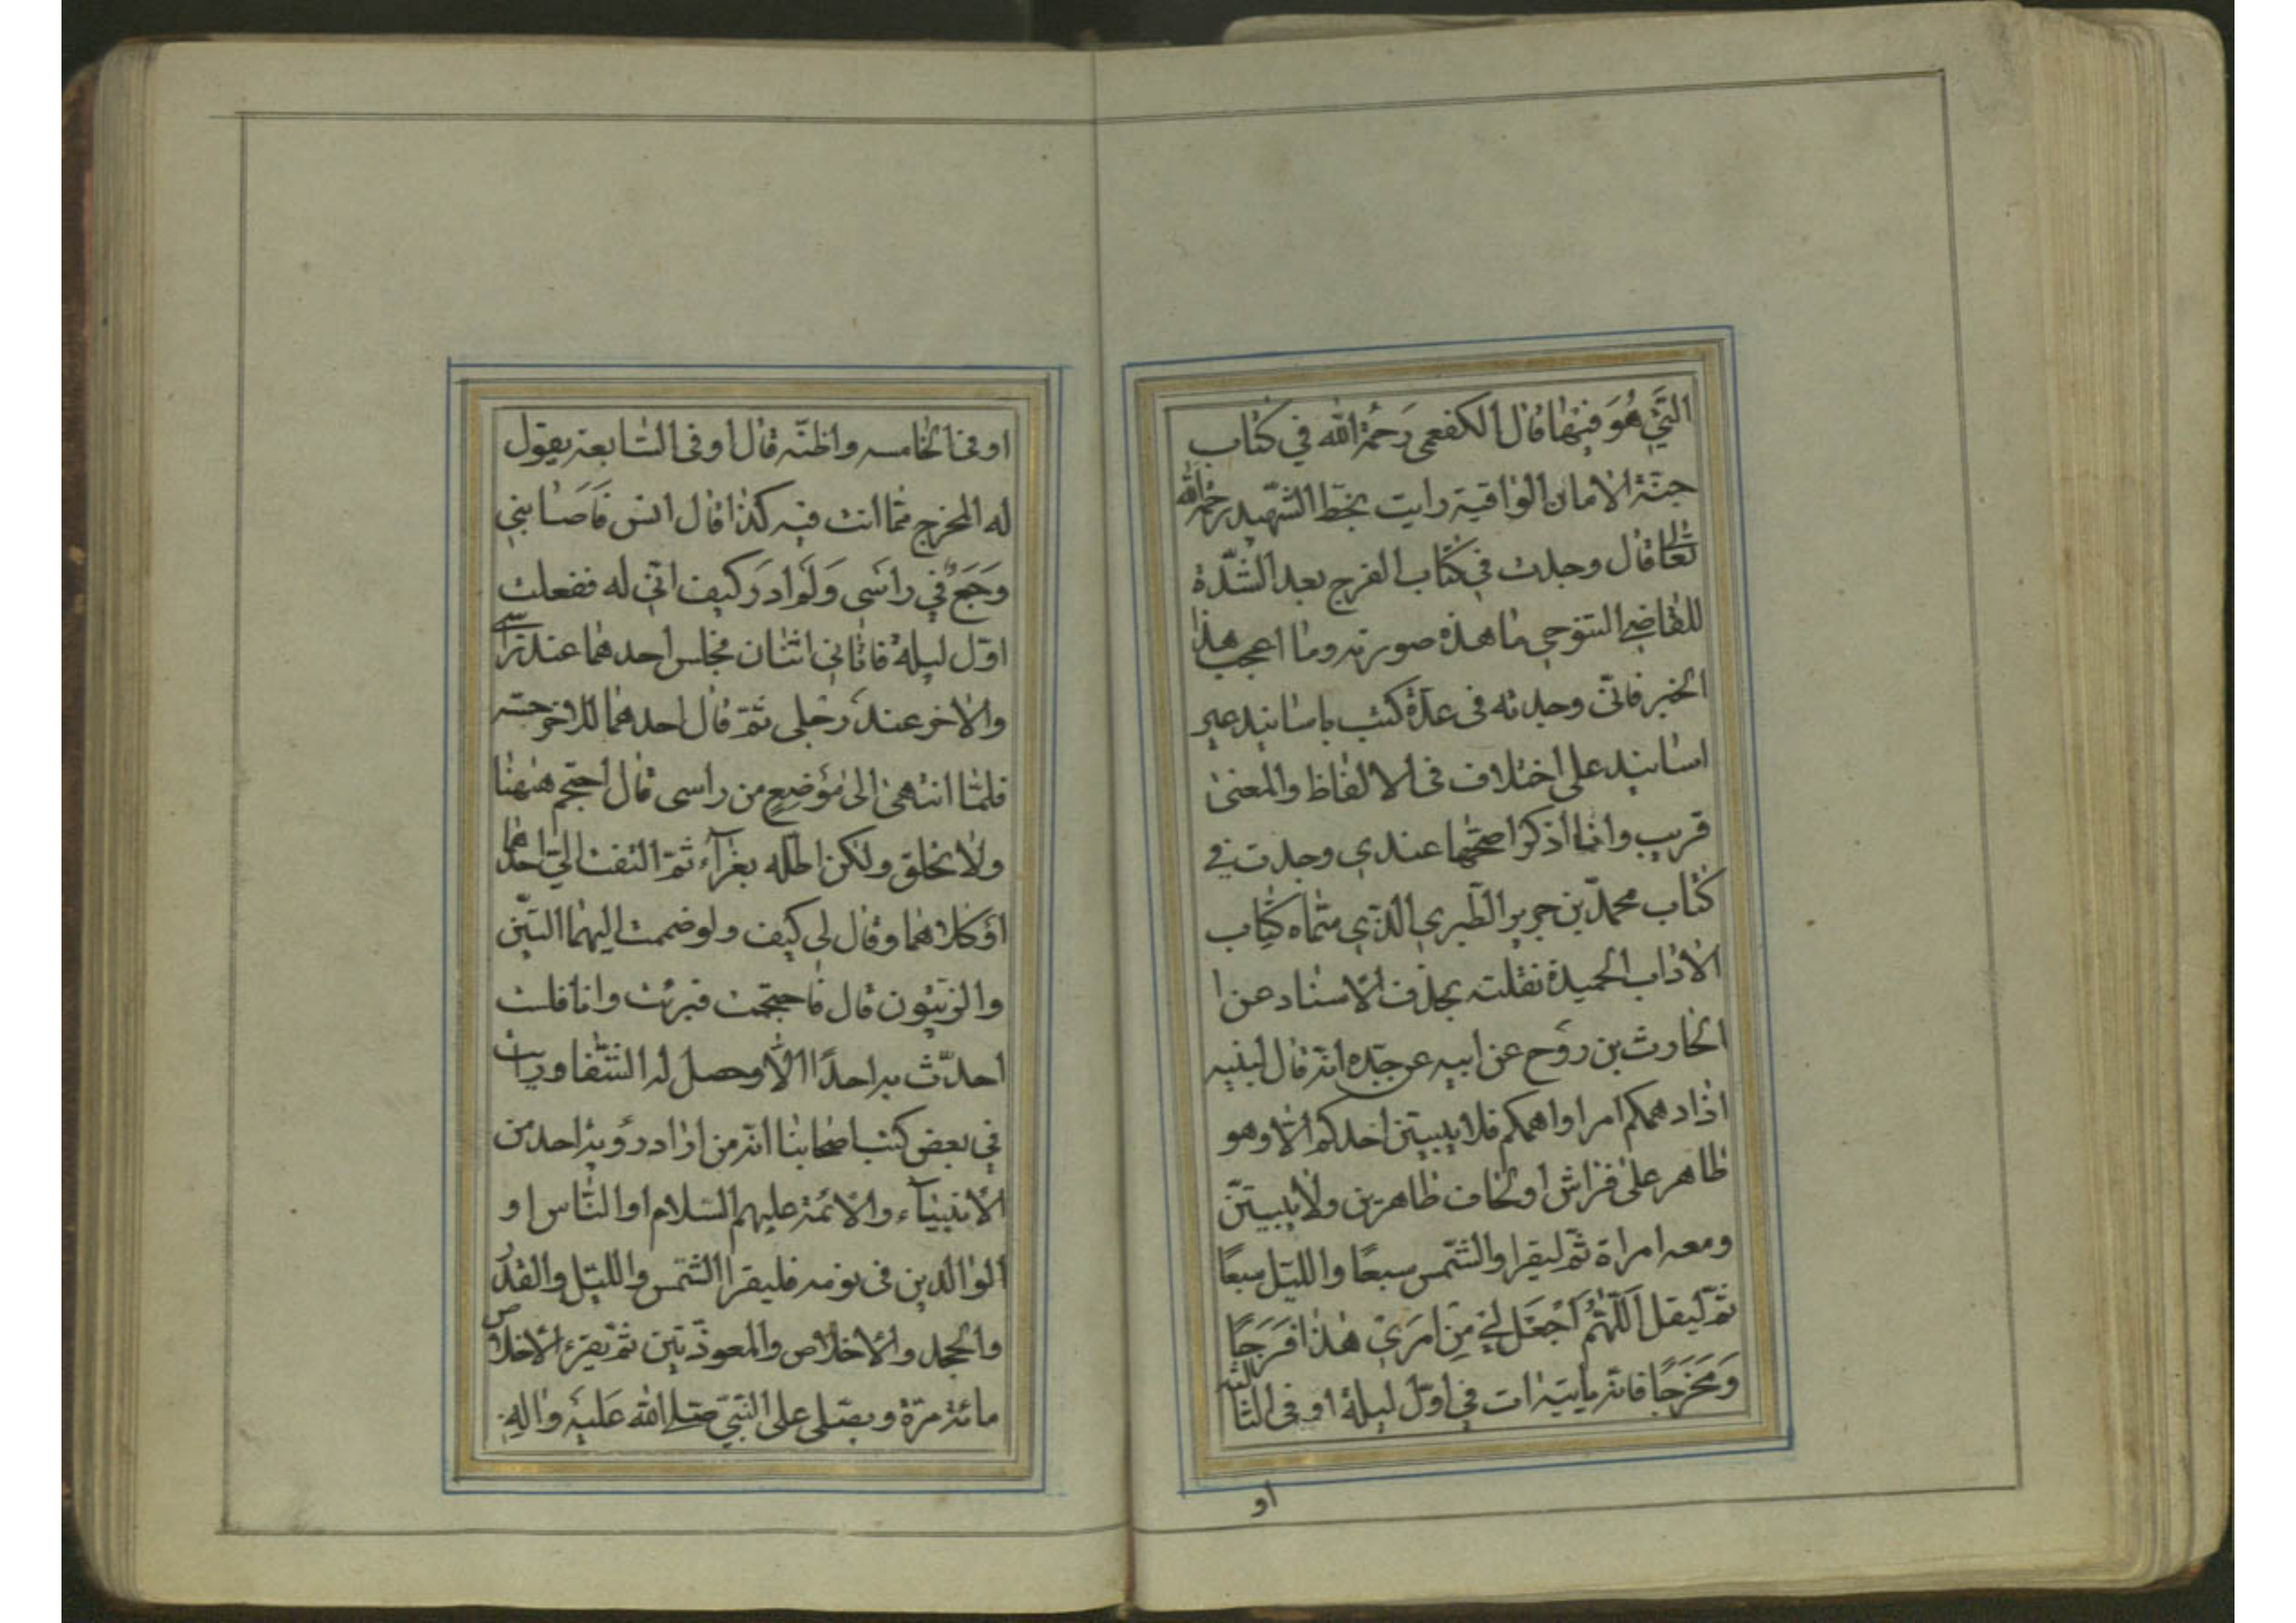 التي هو فيها قال الكفعمي رحمة الله في كتاب
جنة الامان الواقية رايت بخط الشهيد رحمه الله
تعالى قال وجدت في كتاب الفرج بعد الشدة
للقاضي التنوخي ما هذه صورته وما اعجب هذا
الخبر فانى وجدته فى عدة كتب باسانيد غير
اسانيد على اختلاف فى الالفاظ والمعنى
قريب وانا اذكر اصحها عندي وجدت في
كتاب محمد بن جرير الطبري الذي سماه كتاب
الاداب الحميدة نقلته بحذف الاسناد عن ا
الحارث بن روح عن ابيه عن جده انه قال لبنيه
اذا دهمكم امر او اهمكم فلا يبيتن احدكم الا وهو
طاهر على فراش او لحاف طاهرين ولا يبيتن
ومعه امراة ثم ليقرا والشمس سبعا والليل سبعا
ثم ليقل اللهم اجعل لي من امري هذا فرجا
ومخرجا فانه ياتيه ات في اول ليلة او فى الثالثه
او
او فى الخامسه واظنه قال او فى السابعة يقول
له المخرج مما انت فيه كذا قال انس فاصابني
وجع في راسى ولم ادر كيف اتي له ففعلت
اول ليلة فاتاني اثنان فجلس احدهما عند راسي
والاخر عند رجلي ثم قال احدهما للاخر جسه
فلما انتهى الى موضع من راسى قال احتجم ههنا
ولا تحلق ولكن اطله بغرآء ثم التفت الي احدهما
او كلاهما وقال لي كيف ولو ضممت اليهما التين
والزيتون قال فاحتجمت فبرئت وانا فلست
احدث به احدا الا وحصل له الشفا ورايت
في بعض كتب اصحابنا انه من اراد رؤية احد من
الانبيآء والائمة عليهم السلام او الناس او
الوالدين فى نومه فليقرا الشمس والليل والقدر
والجحد والاخلاص والمعوذتين ثم يقرء الاخلاص
مائة مرة ويصلى على النبي صلى الله عليه واله